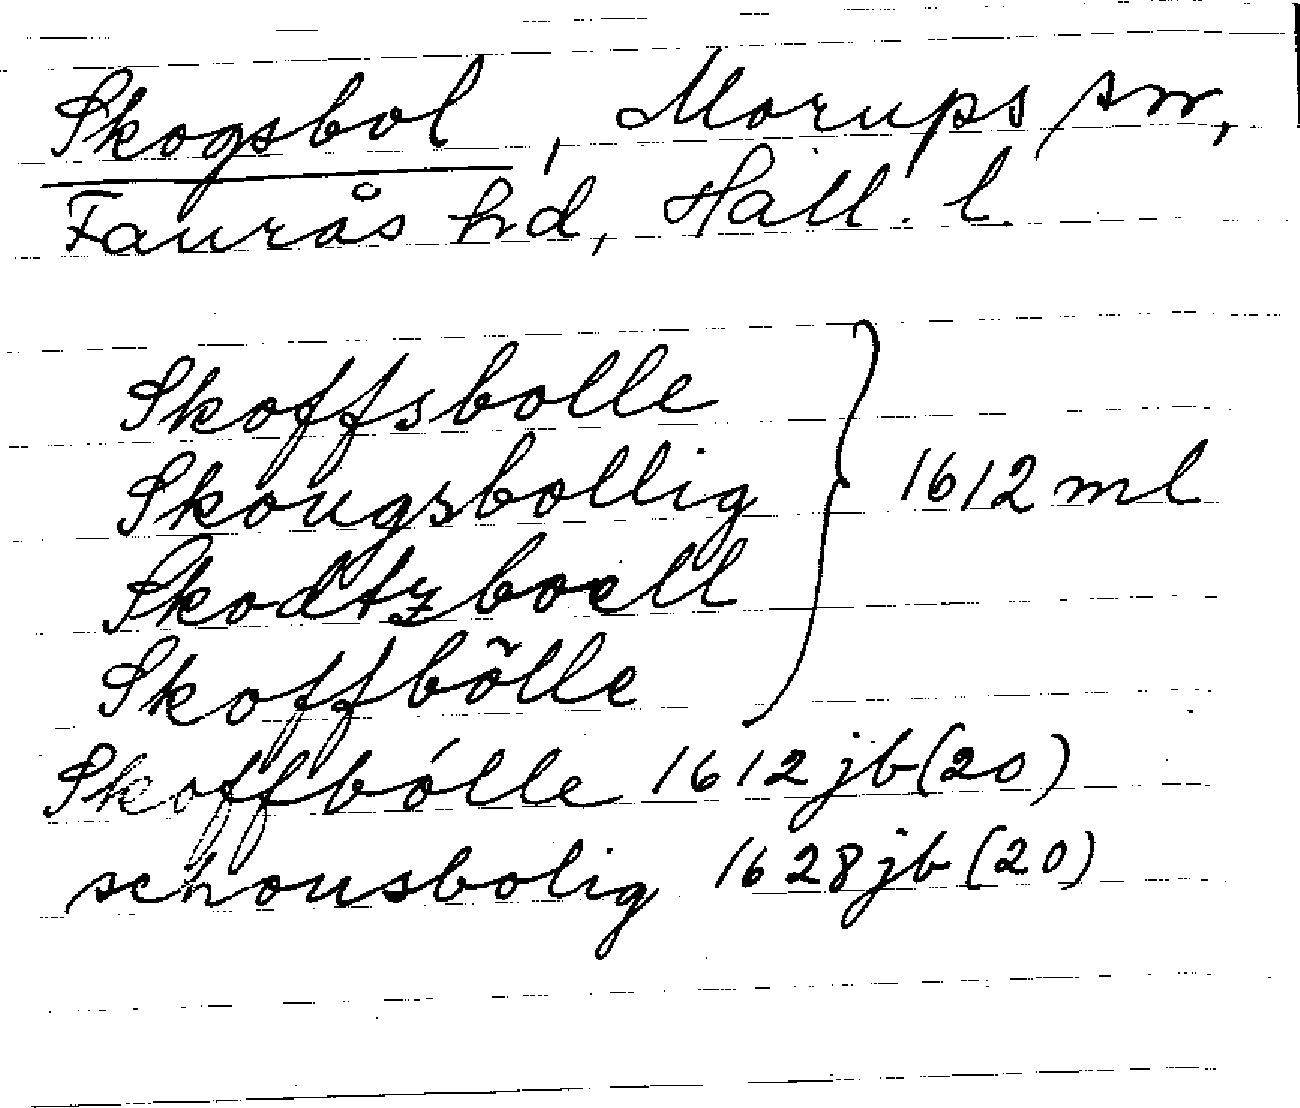 Skogsbol, Morups sn,
Faurås hd, Hall. l.
Skoffsbolle
Skougsbollig } 1612 ml
Skodtzboell
Skoffbõlle
Skoffbólle 1612 jb (20)
schousbolig 1628 jb (20)